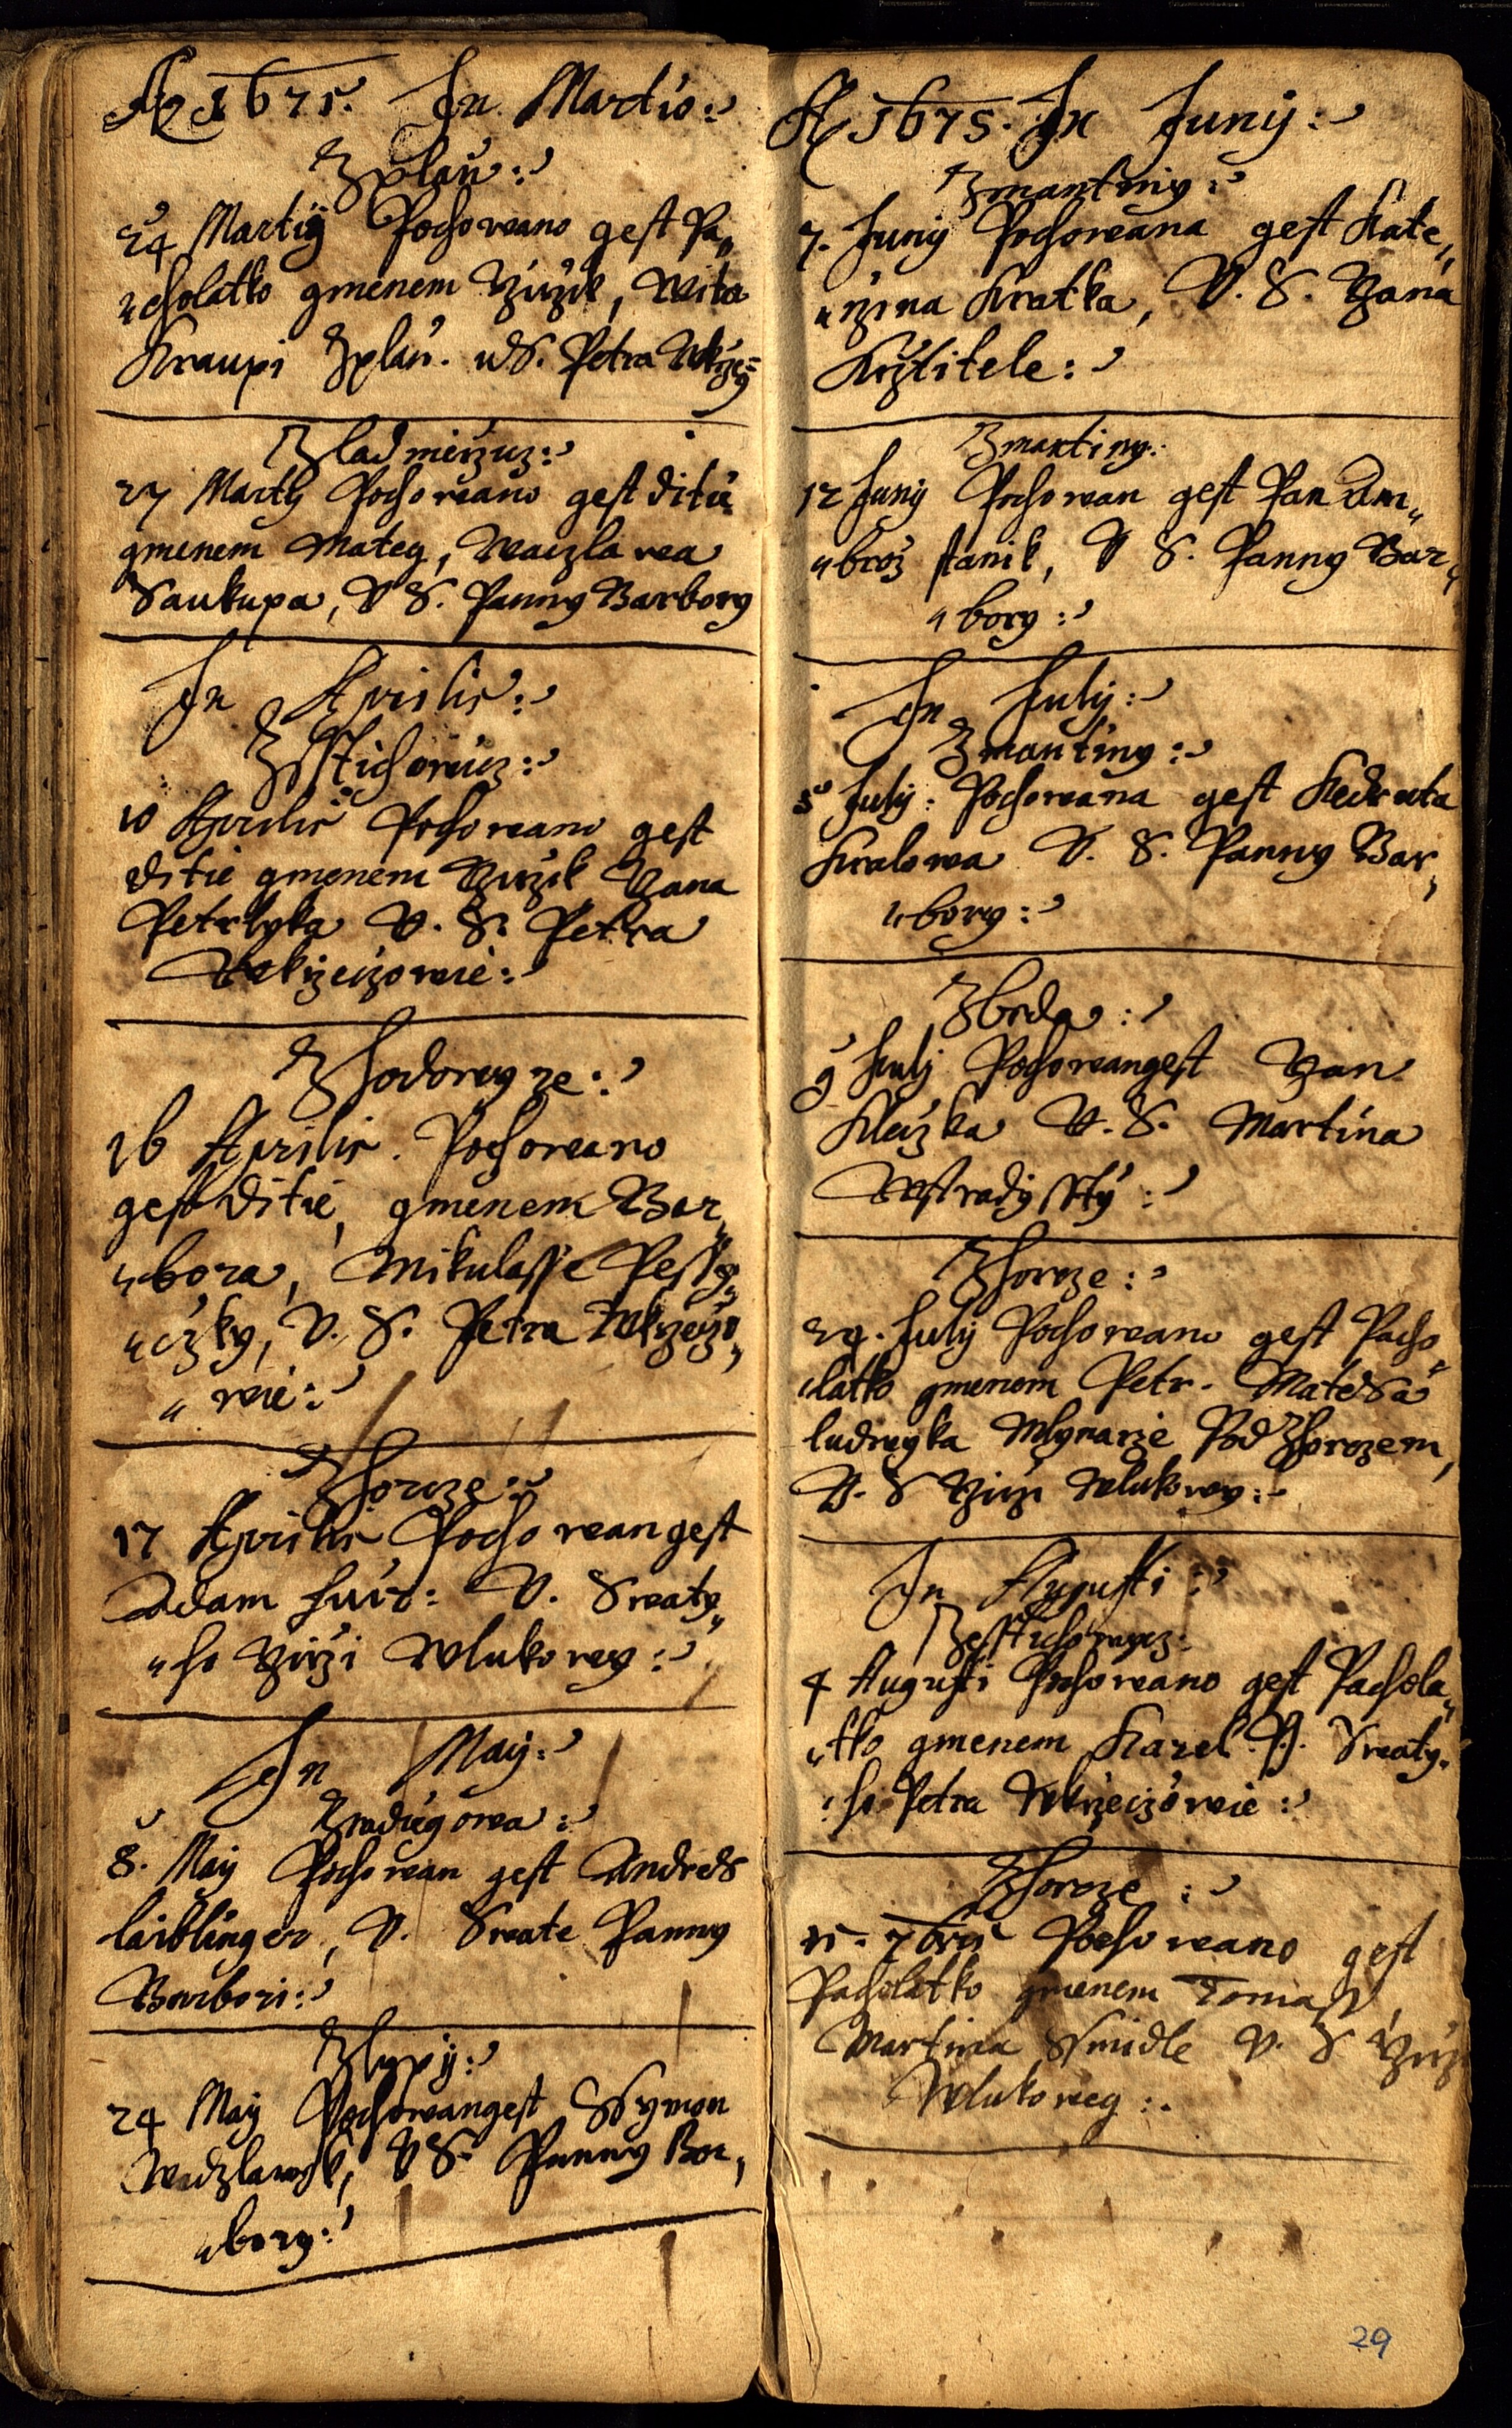 Ao 1675. In Martio:
Zplan:
24 Martij Pochowano gest Pa„
„cholatko gmenem Girzik, Wita
Kraupi Zplan. u S. Petra Wkrze=
Zladmierzicz:
27 Martij Pochowano gest ditie
gmenem Mateg, Waczlawa
Saukupa, U S. Panny Barbory
In Aprilis:
Zsstichowicz:
10 Aprilis Pochowano gest
ditie gmenem Girzik Yana
Petrlyka U. S. Petra
Wekrzeczowie:
Zhodowyze:
16 Aprilis. Pochowano
gest ditie, gmenem Bar„
„bora, Mikulasse Pessy„
„czky, U. S. Petra Wkrzeczo„
„wie:
Zhorze:
17 Aprilis Pochowan gest
Adam U. Swaty„
„ho Girzi Wlukowy:
In Maij:
8. Maij Pochowan gest Andres
laiblinger, U. Swate Panny
Barbori:
Zlypij:
24 Maij Pochowan gest Ssymon
Waczlawik, U S. Panny Bar„
„bory:
A 1675. In Junij:
Zmantiny:
7. Junij Pochowana gest Kate„
„rzina Kratka, U. S. Yana
Krztitele:
Zmantiny.
12 Junij Pochowan gest Pan Am„
„broz stanik, U S. Panny Bar„
„bory:
In Julij:
Zmantiny:
5 Julij: Pochowana gest Kedruta
Kralowa U. S. Panny Bar„
„bory:
Zbrda:
9 Julij Pochowan gest Yan
Kleczka U. S. Martina
Zhorze:
29. Julij Pochowano gest Pacho„
„latko gmenem Petr. Matessa
ludwyka Mlynarze Pod Zhorzem,
U. S Girzi Wlukowy:
In Augusti:
Zesstichowycz:
4 Augusti Pochowano gest Pachola„
„tko gmenem Karel U. Swaty„
„ho Petra Wkrzeczowie:
Zhorze:
7bris Pochowano gest
Pacholatko gmenem Tomass,
Martina Smidle U. S Girzi
Wlukoweg:
29